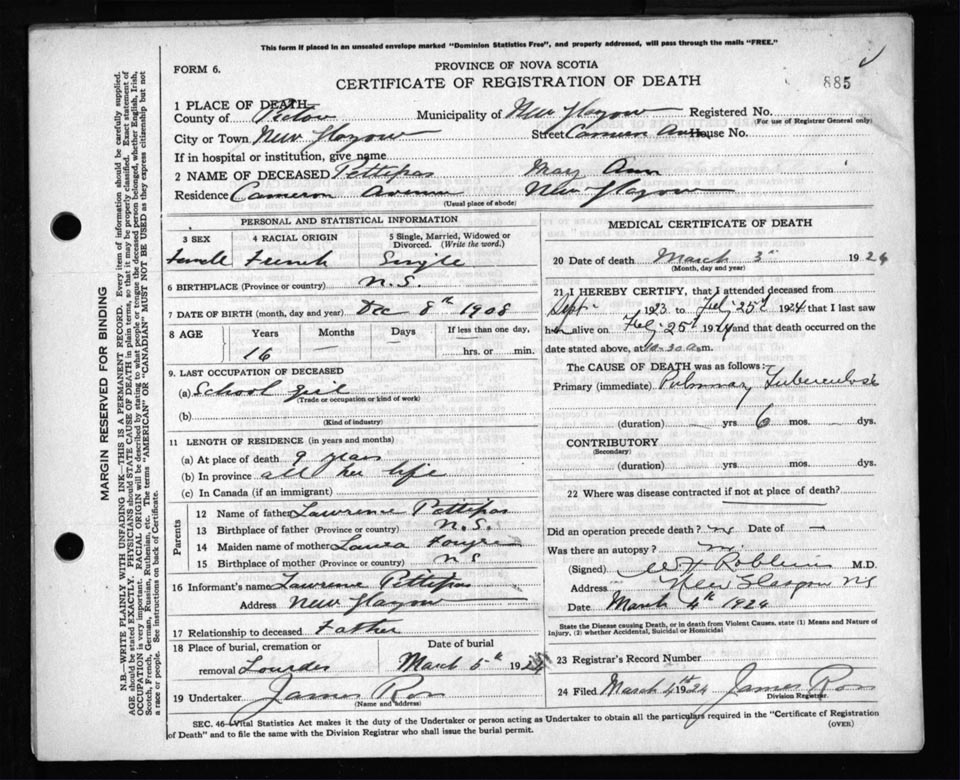 This form if placed in an unsealed envelope marked "Dominion Statistics Free", and properly addressed, will pass through the mails "FREE."
FORM 6.
PROVINCE OF NOVA SCOTIA
CERTIFICATE OF REGISTRATION OF DEATH
885
1 PLACE OF DEATH
County of Pictou Municipality of New Glasgow Registered No.
(For use of Registrar General only)
City or Town New Glasgow Street Cameron Av House No.
If in hospital or institution, give name
2 NAME OF DECEASED Pettipas Mary Ann
Residence Cameron Avenue New Glasgow
(Usual place of abode)
PERSONAL AND STATISTICAL INFORMATION
3 SEX 4 RACIAL ORIGIN 5 Single, Married, Widowed or Divorced. (Write the word.)
Female French Single
6 BIRTHPLACE (Province or country) N.S.
7 DATE OF BIRTH (month, day and year) Dec 8th 1908
8 AGE Years Months Days If less than one day,
16 hrs. or min.
9. LAST OCCUPATION OF DECEASED
(a) School girl
(Trade or occupation or kind of work)
(b)
(Kind of industry)
11 LENGTH OF RESIDENCE (in years and months)
(a) At place of death 9 years
(b) In province all her life
(c) In Canada (if an immigrant)
Parents
12 Name of father Lawrence Pettipas
13 Birthplace of father (Province or country) N.S.
14 Maiden name of mother Laura
15 Birthplace of mother (Province or country) N S
16 Informant's name Lawrence Pettipas
Address New Glasgow
17 Relationship to deceased Father
18 Place of burial, cremation or removal Lourdes
Date of burial March 5th 1924
19 Undertaker James Ross
(Name and address)
MEDICAL CERTIFICATE OF DEATH
20 Date of death March 3rd 1924
(Month, day and year)
21 I HEREBY CERTIFY, that I attended deceased from
Sept 1923 to Feby 25th 1924 that I last saw
her alive on Feby 25th 1924 and that death occurred on
date stated above, at 10-30 a.m.
The CAUSE OF DEATH was as follows:
Primary (immediate) Pulmonary Tuberculosis
(duration) yrs 6 mos. dys.
CONTRIBUTORY
(Secondary)
(duration) yrs. mos. dys.
22 Where was disease contracted if not at place of death?
Did an operation precede death? no Date of —
Was there an autopsy? no
(Signed) Robbins M.D.
Address New Glasgow NS
Date March 4th 1924
State the Disease causing Death, or in death from Violent Causes, state (1) Means and Nature of Injury, (2) whether Accidental, Suicidal or Homicidal
23 Registrar's Record Number
24 Filed March 4th 1924 James Ross
Division Registrar
SEC. 46—Vital Statistics Act makes it the duty of the Undertaker or person acting as Undertaker to obtain all the particulars required in the "Certificate of Registration
of Death" and to file the same with the Division Registrar who shall issue the burial permit.
(OVER)
MARGIN RESERVED FOR BINDING
N.B.—WRITE PLAINLY WITH UNFADING INK—THIS IS A PERMANENT RECORD. Every item of information should be carefully supplied.
AGE should be stated EXACTLY. PHYSICIANS should STATE CAUSE OF DEATH in plain terms, so that it may be properly classified. Exact statement of
OCCUPATION is very important. RACIAL ORIGIN will be described by stating to what people or tongue the deceased person belonged, whether English, Irish,
Scotch, French, German, Russian, Ruthenian, etc. The terms "AMERICAN" OR "CANADIAN" MUST NOT BE USED as they express citizenship but not
a race or people. See instructions on back of Certificate.